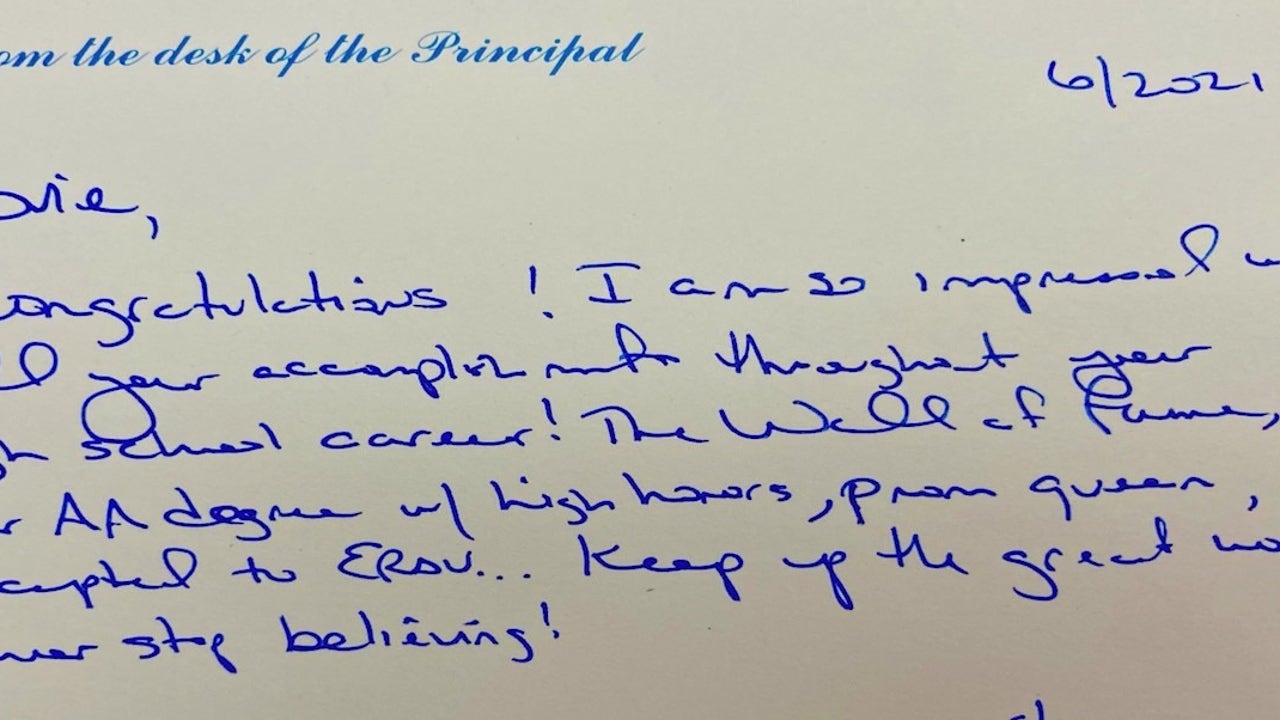 om the desk of the Principal
6/2021
ovie,
ongratulations! I am so impressed w
l your accomplishments throughout your
gh school career! The Wall of Fame,
r AA degree w/ high honors, prom queen,
cepted to ERAU... Keep up the great wo
ever stop believing!